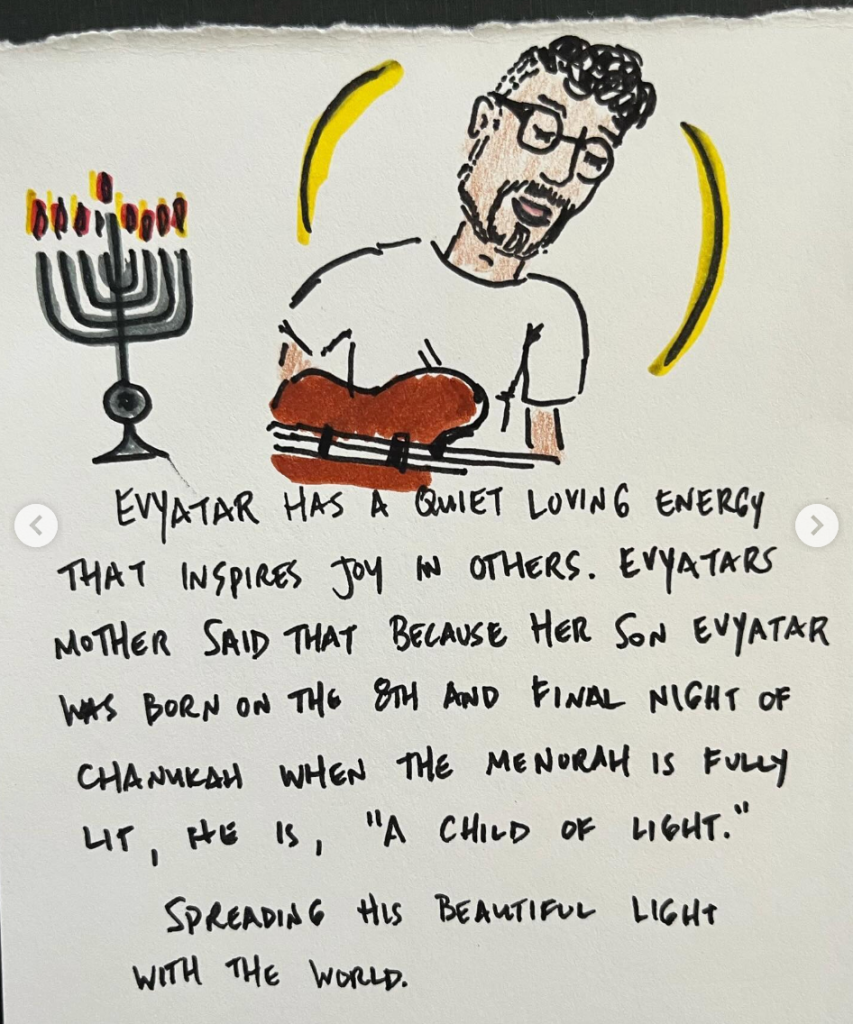 EVYATAR HAS A QUIET LOVING ENERGY
THAT INSPIRES JOY IN OTHERS. EVYATARS
MOTHER SAID THAT BECAUSE HER SON EVYATAR
WAS BORN ON THE 8TH AND FINAL NIGHT OF
CHANUKAH WHEN THE MENORAH IS FULLY
LIT, HE IS, "A CHILD OF LIGHT."
SPREADING HIS BEAUTIFUL LIGHT
WITH THE WORLD.